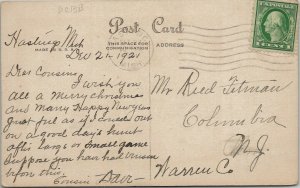 Post Card
THIS SPACE FOR
ADDRESS
MADE IN U.S.A.
Hastings Mich
Dec 21 - 1921
Dear Cousin;
I wish you
all a Merry Christmas
and Many Happy New years
Just feel as if could out
on a good days hunt
after large or small game
Suppose you have had
this
Cousin Dave
Mr Reed Titman
Columbia
N.J.
Warren Co